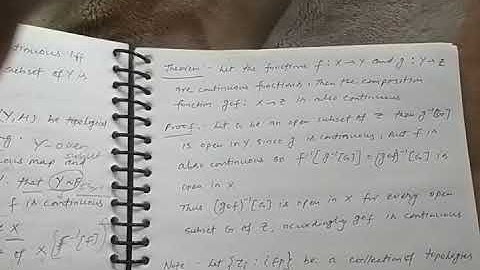 continuous iff
subset of Y is
(Y, H) be topological
Y-over
subset
ous map and
that Y
f is continuous
X
of X (f⁻¹[f])
Theorem - Let the functions f: X→Y and g: Y→Z
are continuous functions. Then the composition
function gof: X→Z is also continuous
Proof - Let G be an open subset of Z then g⁻¹[G]
is open in Y since g is continuous, But f is
also continuous so f⁻¹[g⁻¹[G]] = (gof)⁻¹[G] is
open in X
Thus (gof)⁻¹[G] is open in X for every open
subset G of Z, accordingly gof is continuous
Note - Let {Zi : i be a collection of topologies